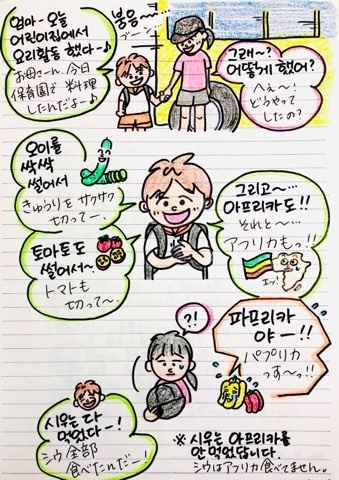 엄마~ 오늘
어린이집에서
요리활동 했다~♪
お母さーん、今日
保育園で 料理
したんだよー♪
붕웅~~
ブーン
그래~?
어떻게 했어?
へぇ〜!
どうやって
したの?
오이를
싹싹
썰어서
きゅうりを サクサク
切ってー、
그리고~…
아프리카도!!
それと〜…
アフリカもっ!!
エッ!
토마토도
썰어서~
トマトも
切って〜、
?!
파프리카
야ー!!
パプリカ
っす〜っ!!
시우는 다
먹었다ー!
シウ 全部
食べたんだー!
※ 시우는 아프리카를
안 먹었답니다.
シウはアフリカ食べてません。